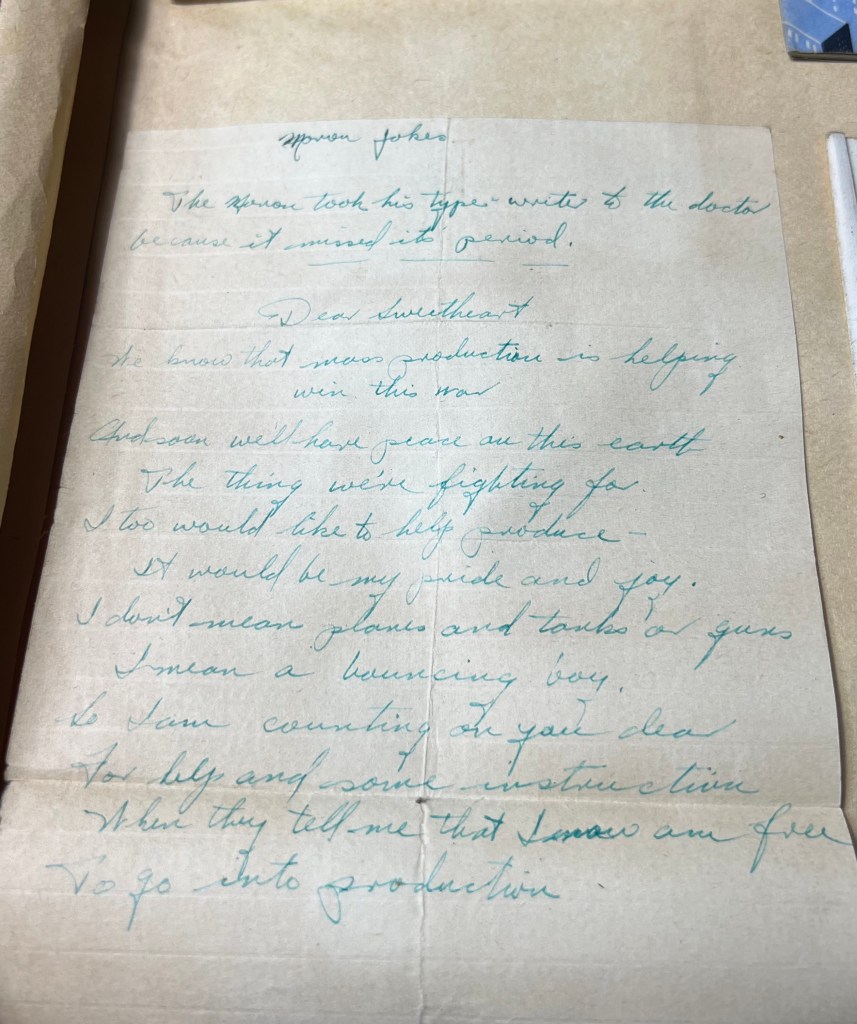 Moron Jokes.
The Moron took his type-writer to the doctor
because it missed its' period.
Dear Sweetheart
We know that mass production is helping
win this war
And soon we'll have peace on this earth
The thing we're fighting for.
I too would like to help produce –
It would be my pride and joy.
I don't mean planes and tanks or guns
I mean a bouncing boy.
So I am counting on you dear
For help and some instruction
When they tell me that I now am free
To go into production